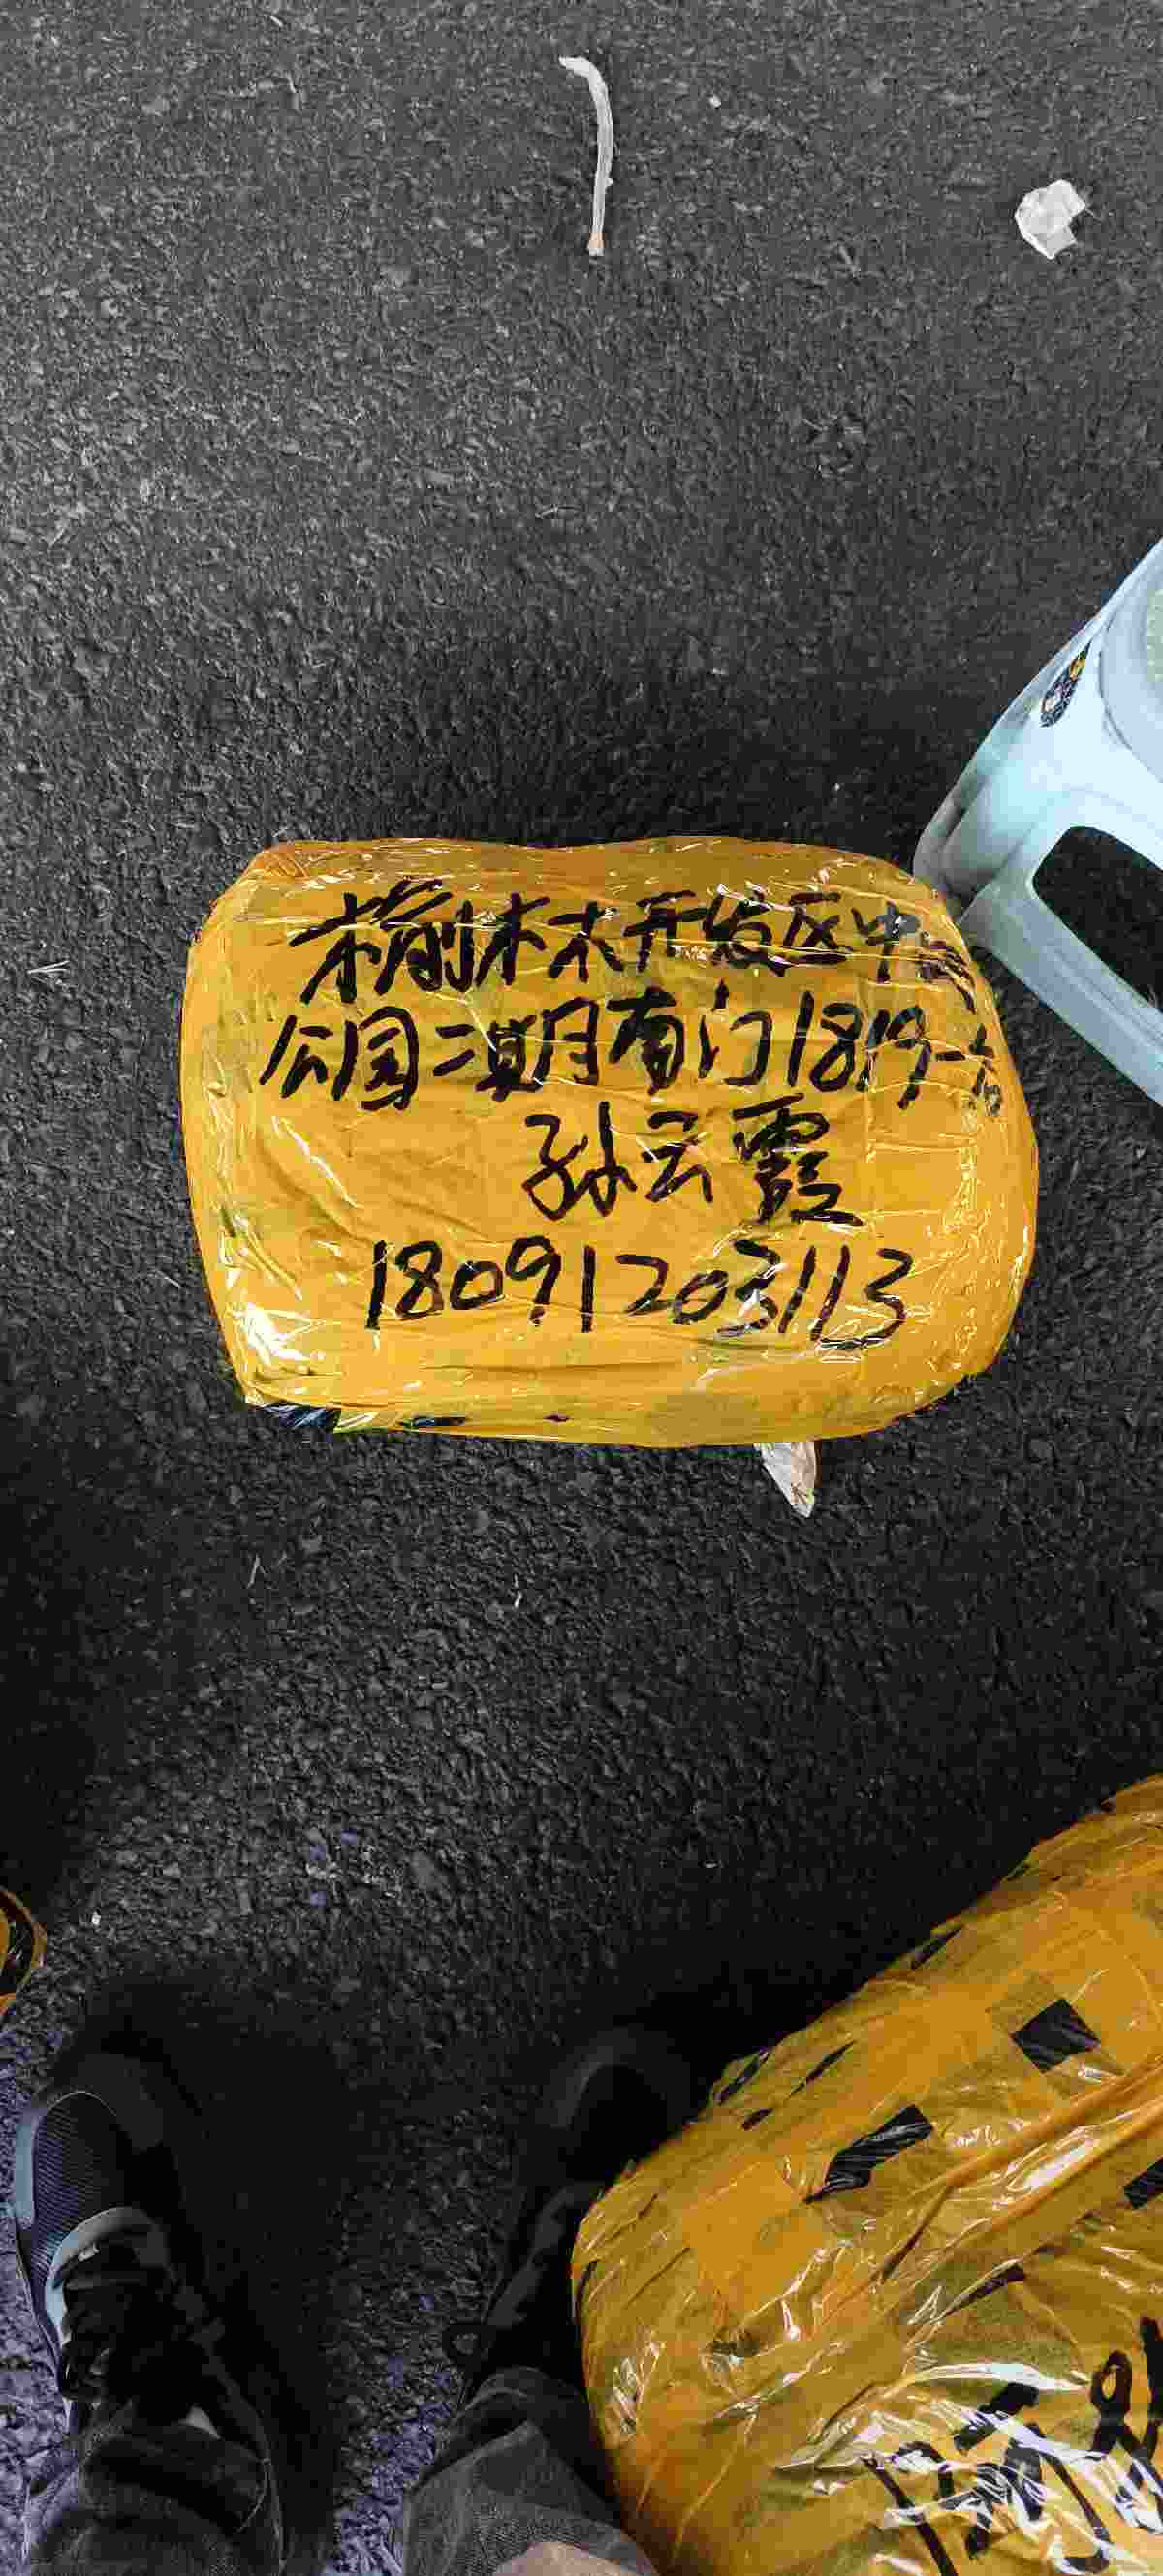 榆林开发区中
公园二期南门1819-
孙云霞
18091203113